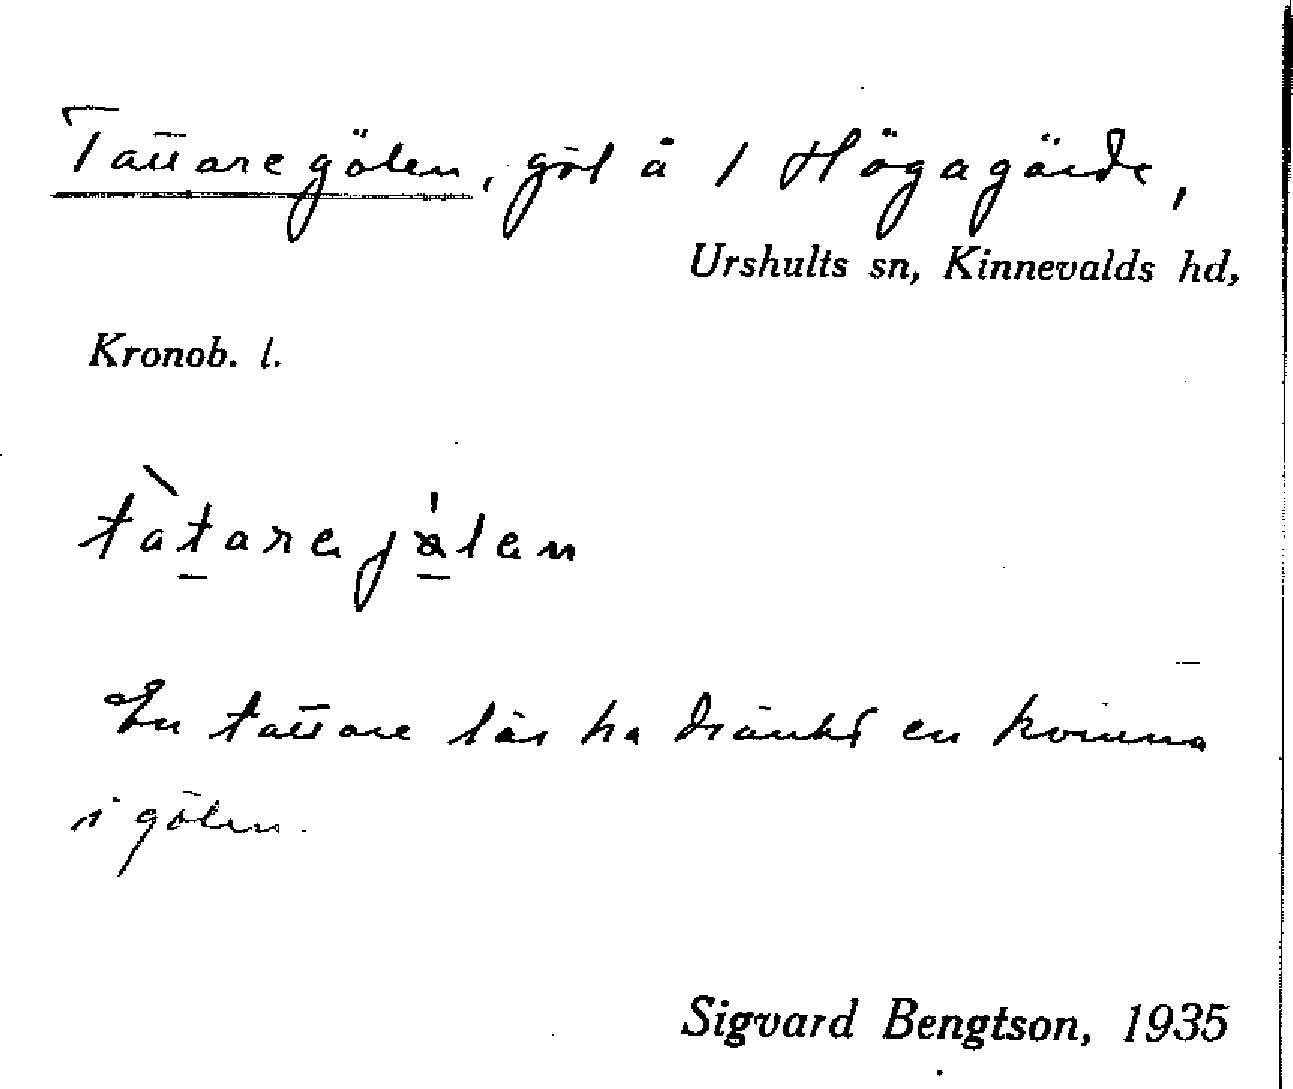 Tattaregölen, göl å 1 Högagärde,
Urshults sn, Kinnevalds hd,
Kronob. l.
tàtarejålen
En tattare lär ha dränkt en kvinna
i gölen.
Sigvard Bengtson, 1935